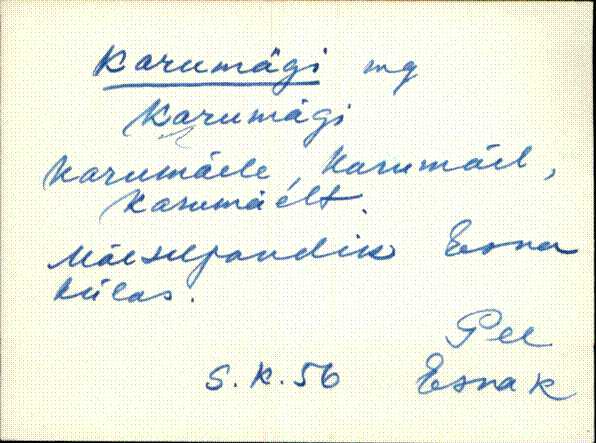 Karumägi mg
Karumägi
Karumäele, Karumäel,
Karumäelt.
Mäeseljandik Esna
külas.
Pee
S.K.56 Esna k